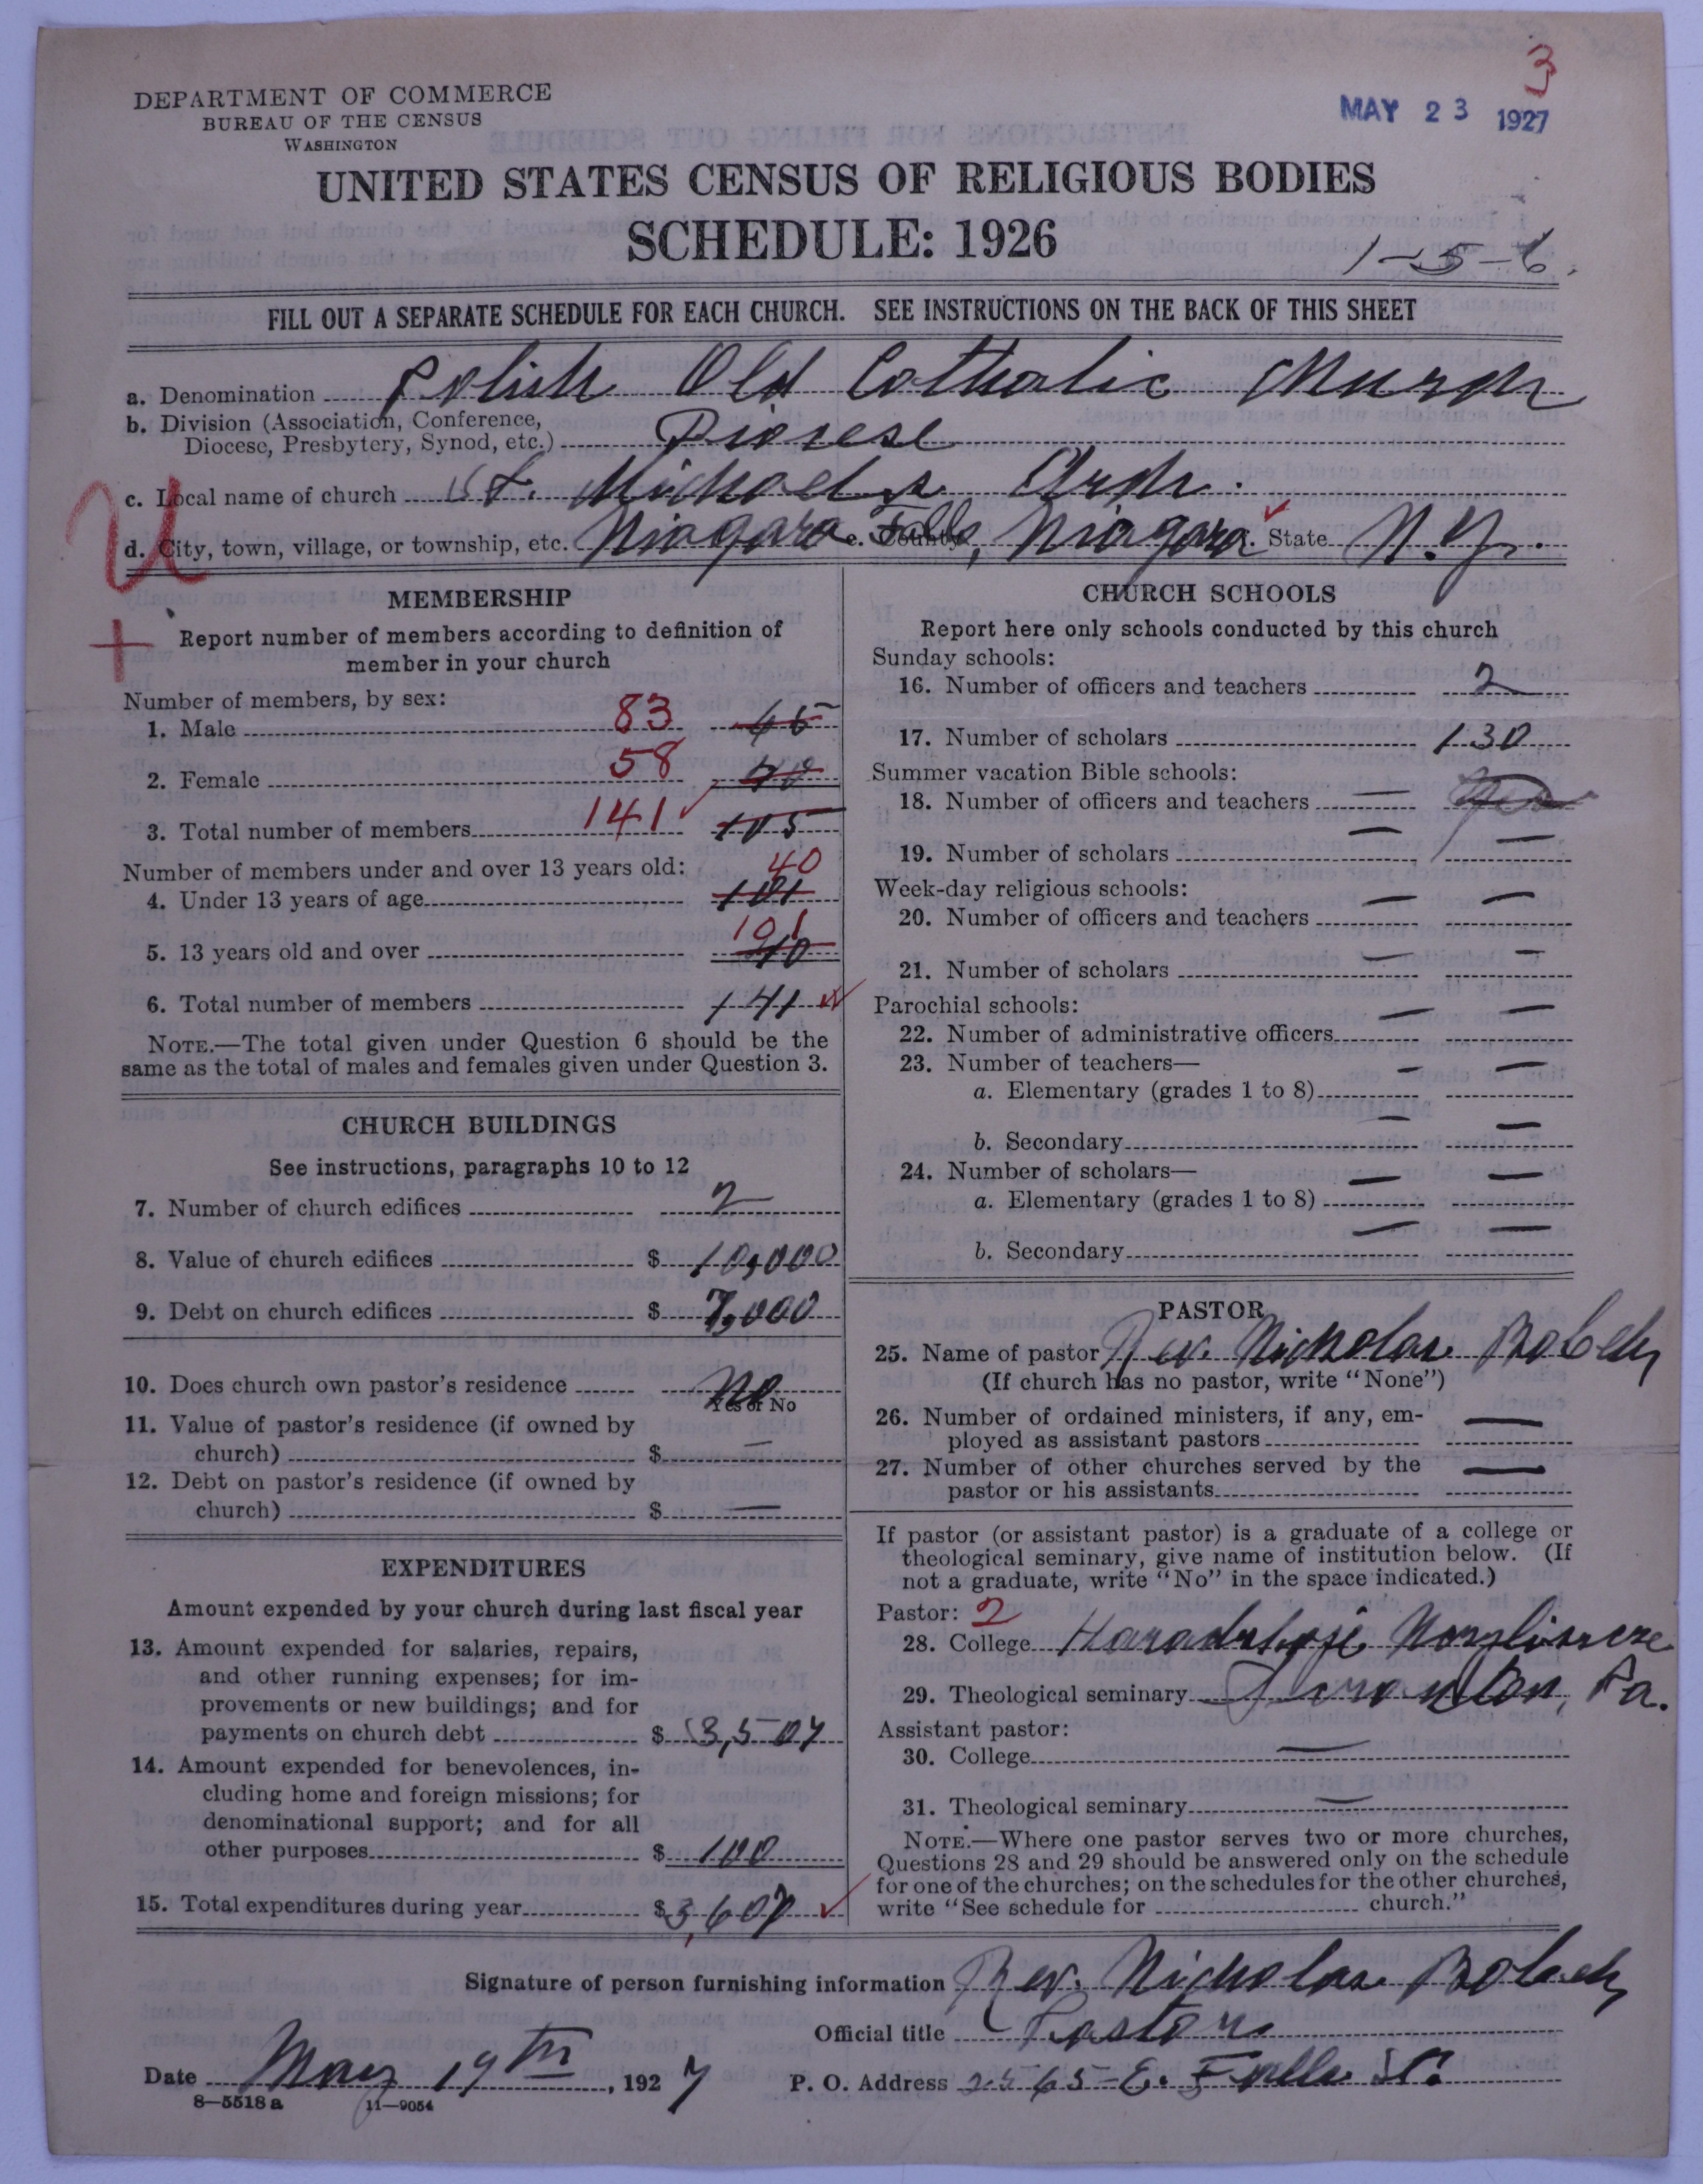 3
MAY 23 1927
DEPARTMENT OF COMMERCE
BUREAU OF THE CENSUS
WASHINGTON
UNITED STATES CENSUS OF RELIGIOUS BODIES
SCHEDULE: 1926
1-5-6
FILL OUT A SEPARATE SCHEDULE FOR EACH CHURCH. SEE INSTRUCTIONS ON THE BACK OF THIS SHEET
a. Denomination Polish Old Catholic Church
b. Division (Association, Conference,
Diocese, Presbytery, Synod, etc.) Diocese
c. Local name of church St. Michael's Chrch.
d. City, town, village, or township, etc. Niagara Falls, e. County Niagara State N.Y.
U
+
MEMBERSHIP
Report number of members according to definition of
member in your church
Number of members, by sex:
1. Male 83 45
2. Female 58
3. Total number of members 141 105
Number of members under and over 13 years old:
4. Under 13 years of age 40 101
5. 13 years old and over 101 40
6. Total number of members 141
NOTE.—The total given under Question 6 should be the
same as the total of males and females given under Question 3.
CHURCH BUILDINGS
See instructions, paragraphs 10 to 12
7. Number of church edifices 2
8. Value of church edifices $ 10,000
9. Debt on church edifices $ 7,000
10. Does church own pastor's residence No
Yes or No
11. Value of pastor's residence (if owned by
church) $ —
12. Debt on pastor's residence (if owned by
church) $ —
EXPENDITURES
Amount expended by your church during last fiscal year
13. Amount expended for salaries, repairs,
and other running expenses; for im-
provements or new buildings; and for
payments on church debt $ 3,507
14. Amount expended for benevolences, in-
cluding home and foreign missions; for
denominational support; and for all
other purposes $ 100
15. Total expenditures during year $ 3,607
CHURCH SCHOOLS
Report here only schools conducted by this church
Sunday schools:
16. Number of officers and teachers 2
17. Number of scholars 130
Summer vacation Bible schools:
18. Number of officers and teachers —
19. Number of scholars — —
Week-day religious schools:
20. Number of officers and teachers — —
21. Number of scholars — —
Parochial schools:
22. Number of administrative officers — —
23. Number of teachers—
a. Elementary (grades 1 to 8) — —
b. Secondary — —
24. Number of scholars—
a. Elementary (grades 1 to 8) — —
b. Secondary — —
PASTOR
25. Name of pastor Rev. Nicholas
(If church has no pastor, write "None")
26. Number of ordained ministers, if any, em-
ployed as assistant pastors —
27. Number of other churches served by the
pastor or his assistants —
If pastor (or assistant pastor) is a graduate of a college or
theological seminary, give name of institution below. (If
not a graduate, write "No" in the space indicated.)
Pastor: 2
28. College
29. Theological seminary Scranton, Pa.
Assistant pastor:
30. College —
31. Theological seminary —
NOTE.—Where one pastor serves two or more churches,
Questions 28 and 29 should be answered only on the schedule
for one of the churches; on the schedules for the other churches,
write "See schedule for church."
Signature of person furnishing information Rev. Nicholas
Official title Pastor
Date May 19th, 1927
P. O. Address 2565 E. Falls St.
8—5518 a 11—9054